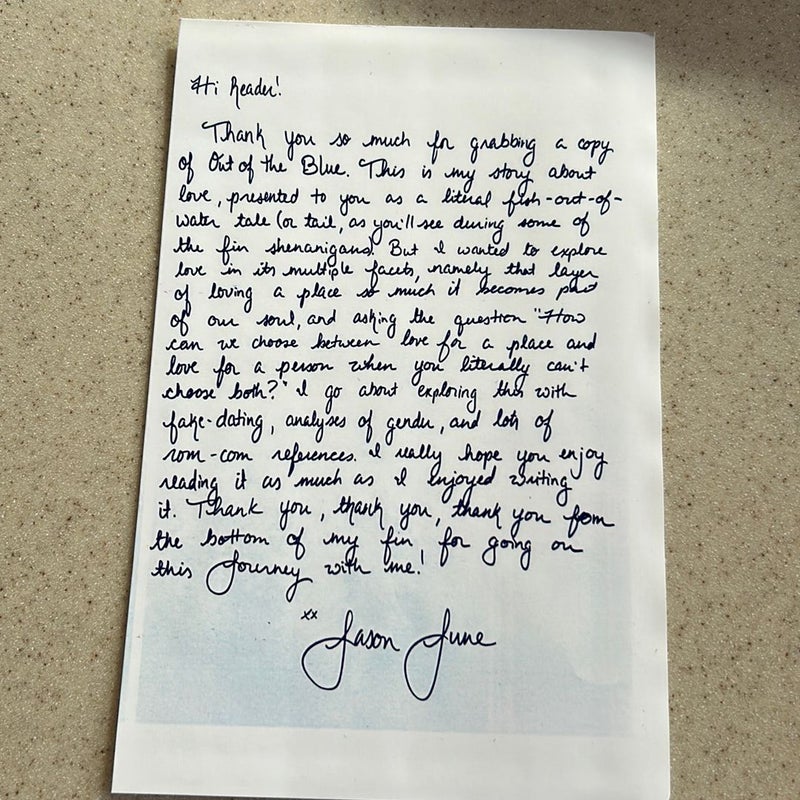 Hi Reader!
Thank you so much for grabbing a copy
of Out of the Blue. This is my story about
love, presented to you as a literal fish-out-of-
water tale (or tail, as you'll see during some of
the fin shenanigans). But I wanted to explore
love in its multiple facets, namely that layer
of loving a place so much it becomes part
of our soul, and asking the question "How
can we choose between love for a place and
love for a person when you literally can't
choose both?" I go about exploring this with
fake-dating, analyses of gender, and lots of
rom-com references. I really hope you enjoy
reading it as much as I enjoyed writing
it. Thank you, thank you, thank you from
the bottom of my fin, for going on
this journey with me!
xx
Jason June